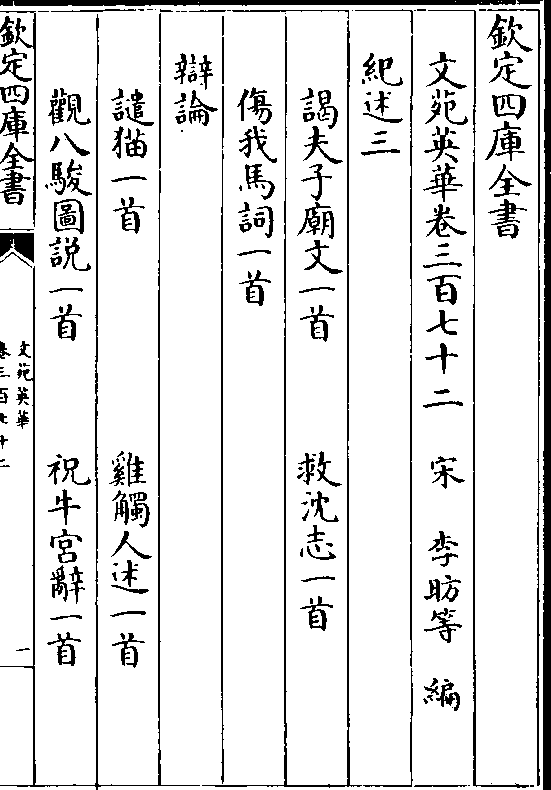 欽定四庫全書
文苑英華卷三百七十二　宋　李昉等　編
紀述三
謁夫子廟文一首　救沈志一首
傷我馬詞一首
辯論
譴猫一首　雞觸人述一首
觀八駿圖説一首　祝牛宮辭一首
欽定四庫全書
文苑英華
卷三百七十二
一